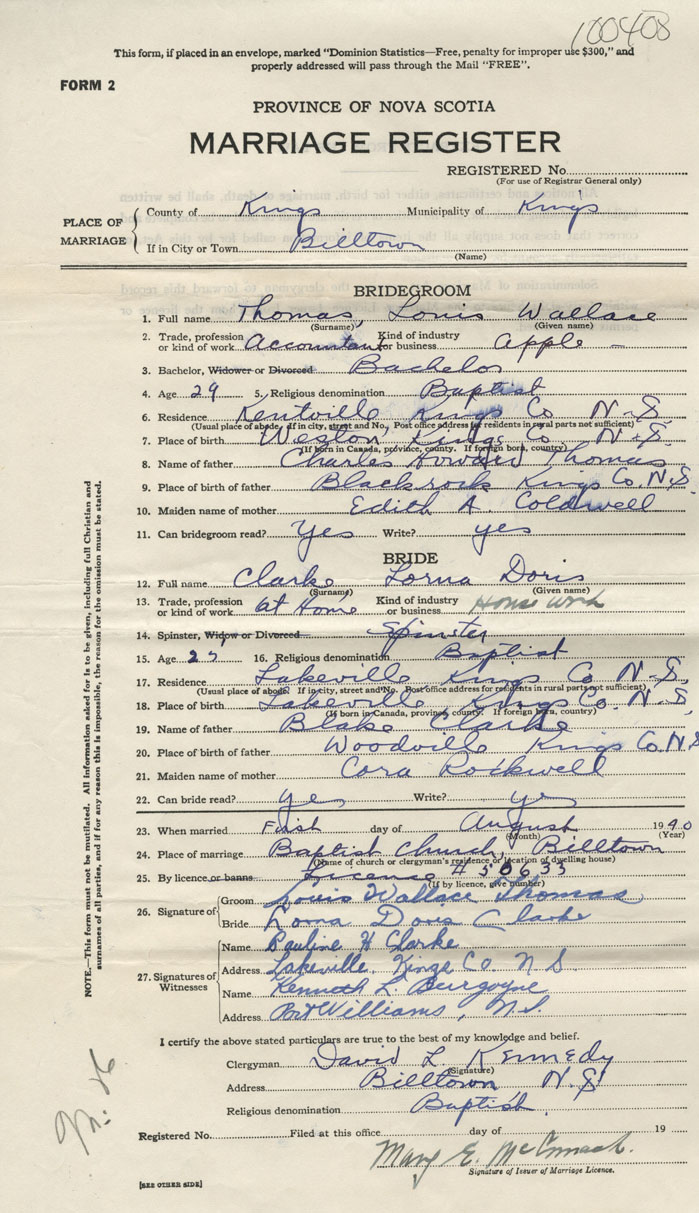 100408
This form, if placed in an envelope, marked "Dominion Statistics—Free, penalty for improper use $300," and
properly addressed will pass through the Mail "FREE".
FORM 2
PROVINCE OF NOVA SCOTIA
MARRIAGE REGISTER
REGISTERED No.
(For use of Registrar General only)
PLACE OF MARRIAGE
County of Kings Municipality of Kings
If in City or Town Billtown
(Name)
BRIDEGROOM
1. Full name Thomas, Louis Wallace
(Surname) (Given name)
2. Trade, profession or kind of work Accountant Kind of industry or business Apple —
3. Bachelor, Widower or Divorced Bachelor
4. Age 29 5. Religious denomination Baptist
6. Residence Kentville Kings Co N.S.
(Usual place of abode. If in city, street and No. Post office address for residents in rural parts not sufficient)
7. Place of birth Weston Kings Co N.S.
(If born in Canada, province, county. If foreign born, country)
8. Name of father Charles Howard Thomas
9. Place of birth of father Blackrock Kings Co. N.S.
10. Maiden name of mother Edith A. Coldwell
11. Can bridegroom read? Yes Write? yes
BRIDE
12. Full name Clarke Lorna Doris
(Surname) (Given name)
13. Trade, profession or kind of work at Home Kind of industry or business House work
14. Spinster, Widow or Divorced Spinster
15. Age 16. Religious denomination Baptist
17. Residence Lakeville Kings Co N.S.
(Usual place of abode. If in city, street and No. Post office address for residents in rural parts not sufficient)
18. Place of birth Lakeville Kings Co N.S.
(If born in Canada, province, county. If foreign born, country)
19. Name of father Blake Clarke
20. Place of birth of father Woodville Kings Co. N.S
21. Maiden name of mother Cora Rockwell
22. Can bride read? yes Write? yes
23. When married First day of August 1940
(Month) (Year)
24. Place of marriage Baptist Church, Billtown
(Name of church or clergyman's residence or location of dwelling house)
25. By licence or banns Licence # 50633
(If by licence, give number)
26. Signature of
Groom Louis Wallace Thomas
Bride Lorna Doris Clarke
27. Signatures of Witnesses
Name Pauline H Clarke
Address Lakeville, Kings Co N S
Name Kenneth L. Burgoyne
Address Port Williams, N.S.
I certify the above stated particulars are true to the best of my knowledge and belief.
Clergyman David L. Kennedy
(Signature)
Address Billtown N.S.
Religious denomination Baptist.
Registered No. Filed at this office day of 19
Mary E. McCormack.
Signature of Issuer of Marriage Licence.
[SEE OTHER SIDE]
NOTE.—This form must not be mutilated. All information asked for is to be given, including full Christian and
surnames of all parties, and if for any reason this is impossible, the reason for the omission must be stated.